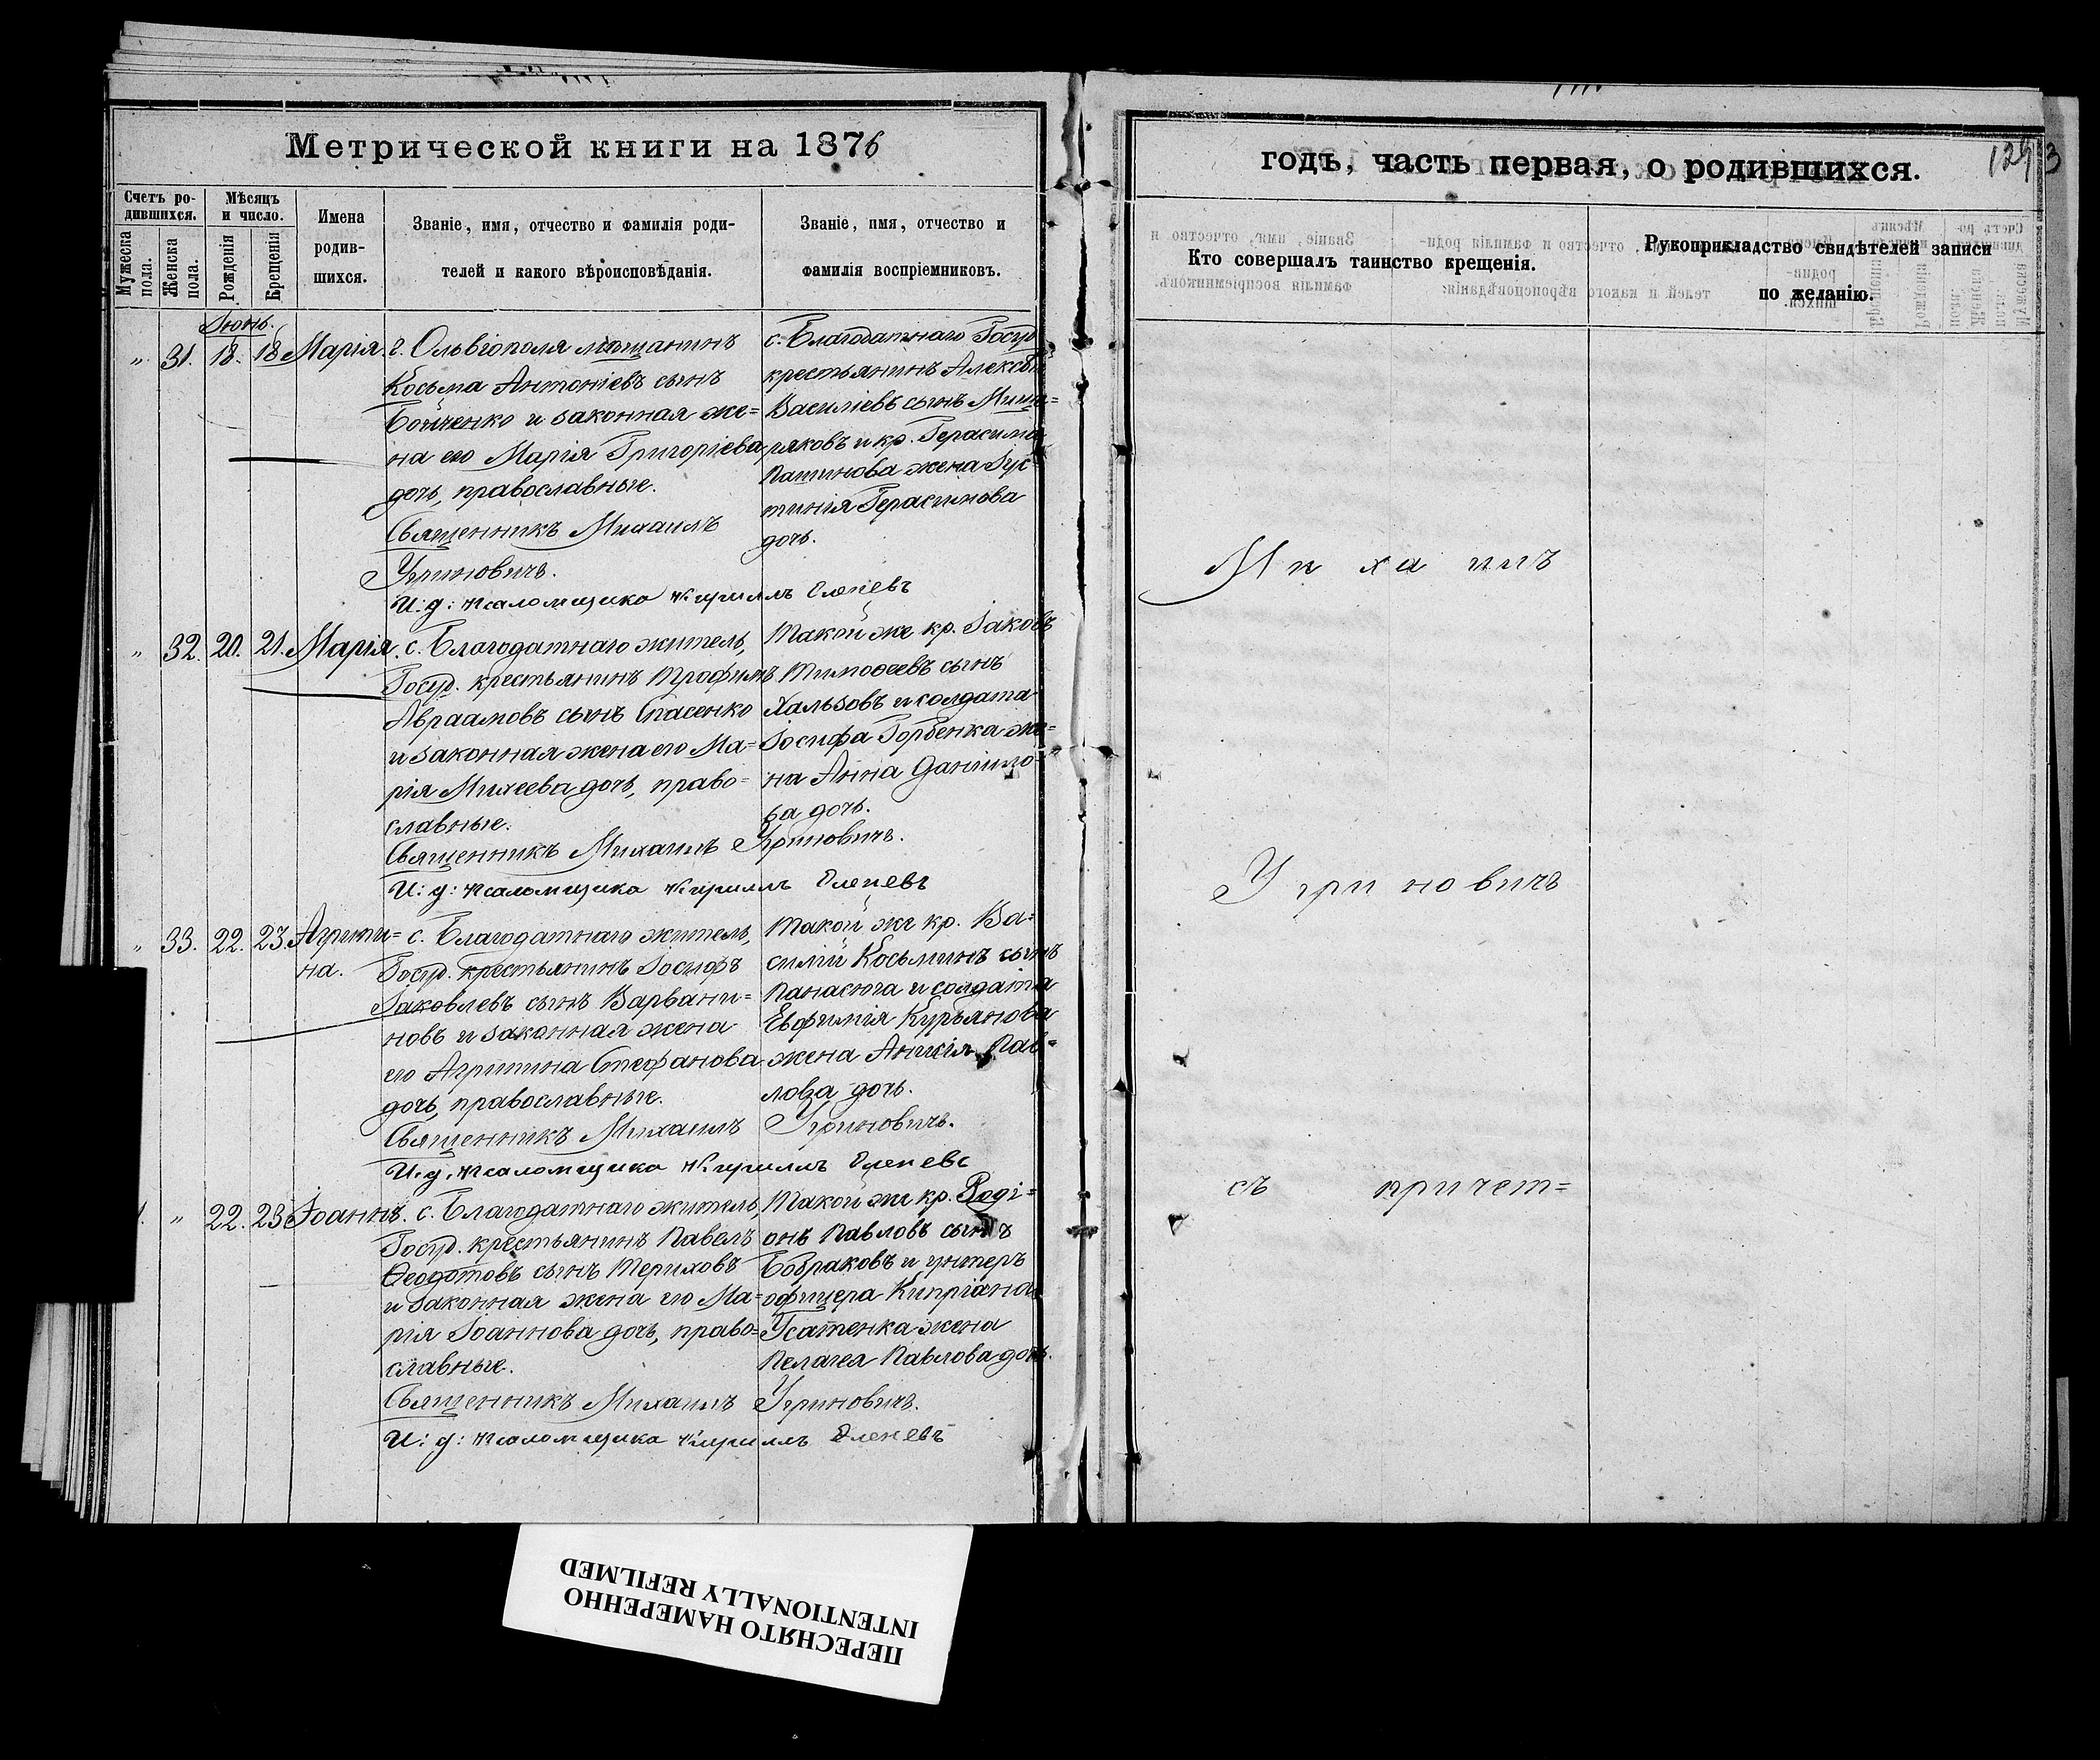 Метрической книги на 1876
Счетъ ро-
дившихся.
Мѣсяцъ
и число.
Мужеска
пола.
Женска
пола.
Рожденія
Крещенія
Имена
родив-
шихся.
Званіе, имя, отчество и фамилія роди-
телей и какого вѣроисповѣданія.
Званіе, имя, отчество и
фамилія воспріемниковъ.
Іюнь.
" 31. 18. 18 Марія.
г. Ольвіополя мѣщанинъ
Косьма Антоніевъ сынъ
Бойченко и законная же=
на его Марія Григоріева
дочь, православные.
Священникъ Михаилъ
Угриновичъ.
И: д: псаломщика Кириллъ
с. Благодатнаго Госуд
крестьянинъ Алексѣй
Василіевъ сынъ
и кр. Герасима
жена Іус=
тинія Герасимова
дочь.
" 32. 20. 21. Марія.
с. Благодатнаго житель,
Госуд. крестьянинъ Трофимъ
Авраамовъ сынъ Спасенко
и законная жена его Ма=
рія Михеева дочь, право=
славные.
Священникъ Михаилъ Угриновичъ.
И: д: псаломщика Кириллъ
Такой же кр. Іаковъ
Тимоѳеевъ сынъ
Хальзовъ и солдата
Іосифа Горбенка же=
на Анна Даніило=
ва дочь.
" 33. 22. 23. Агрипи=
на.
с. Благодатнаго житель,
Госуд. крестьянинъ Іосифъ
Іаковлевъ сынъ Варвани=
новъ и законная жена
его Агрипина Стефанова
дочь, православные.
Священникъ Михаилъ Угриновичъ.
И. д. псаломщика Кириллъ
Такой же кр. Ва=
силій Косьминъ сынъ
Панасюга и солдата
Евфимія Курьянова
жена Анисія Пав=
лова дочь.
" 22. 23 Іоаннъ.
с. Благодатнаго житель,
Госуд. крестьянинъ Павелъ
Ѳеодотовъ сынъ Териховъ
и законная жена его Ма=
рія Іоаннова дочь, право=
славные.
Священникъ Михаилъ Угриновичъ.
И: д: псаломщика Кириллъ
Такой же кр. Родi=
онъ Павловъ сынъ
Бобраковъ и унтеръ
офицера Кипріана
Усатенка жена
Пелагея Павлова дочь.
годъ, часть первая, о родившихся.
Кто совершалъ таинство крещенія.
Рукоприкладство свидѣтелей записи
по желанію.
Михаилъ
Угриновичъ
съ причет=
ПЕРЕСНЯТО НАМЕРЕННО
INTENTIONALLY REFILMED